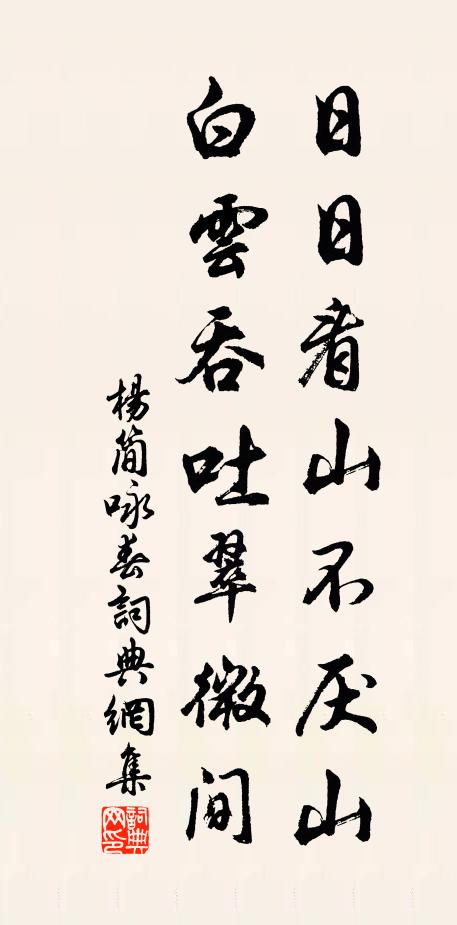 日日看山不厌山
白雲吞吐翠微间
楊简咏春詞典網集
詞典网印